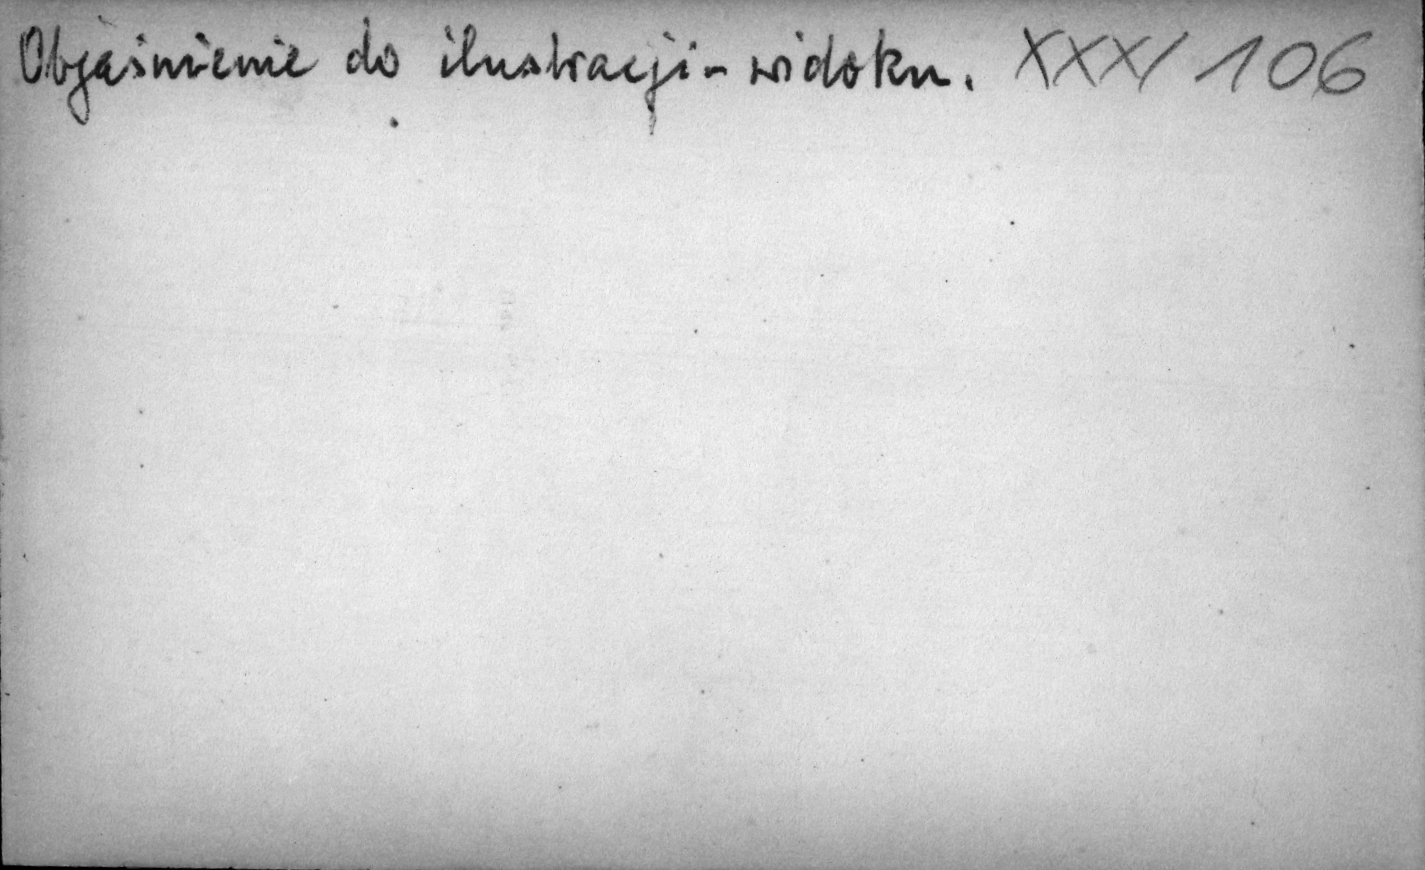 Objaśnienie do ilustracji-widoku. XXX/106